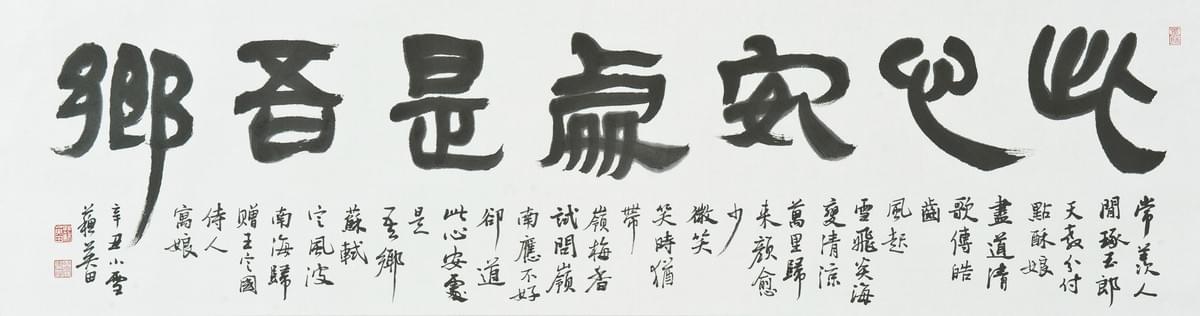 此心安處是吾鄉
常羨人
間琢玉郎
天教分付
點酥娘
盡道清
歌傳皓
齒
風起
雪飛炎海
變清涼
萬里歸
來顏愈
少
微笑
笑時猶
帶
嶺梅香
試問嶺
南應不好
卻道
此心安處
是
吾鄉
蘇軾
定風波
南海歸
贈王定國
侍人
寓娘
辛丑小雪
蘓英田